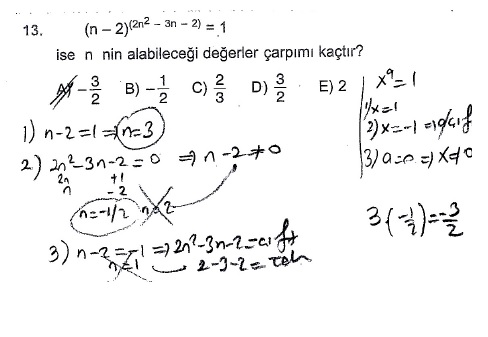 13. (n – 2)^(2n² – 3n – 2) = 1
ise n nin alabileceği değerler çarpımı kaçtır?
A) –3/2 B) –1/2 C) 2/3 D) 3/2 E) 2
x^a = 1
1) x=1
2) x=-1 ⇒ a çift
3) a=0 ⇒ x≠0
1) n-2=1 ⇒ n=3
2) 2n²-3n-2=0 ⇒ n-2≠0
2n +1
n -2
n=-1/2 n=2
3(-1/2)=-3/2
3) n-2=-1 ⇒ 2n²-3n-2=çift
n=1 2-3-2=tek